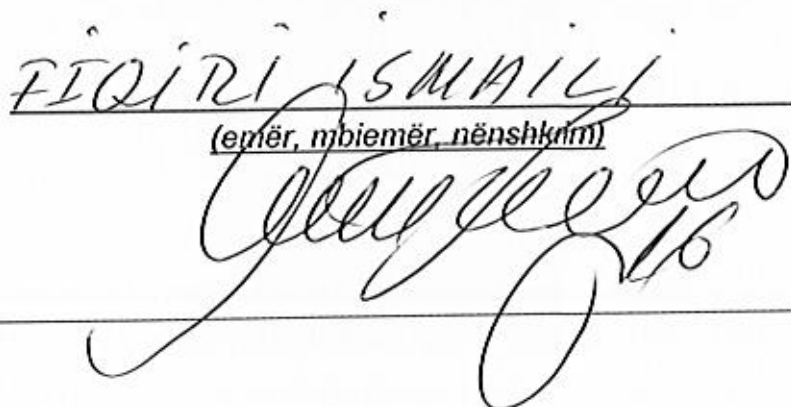 FIQIRI ISMAILI
(emër, mbiemër, nënshkrim)
16